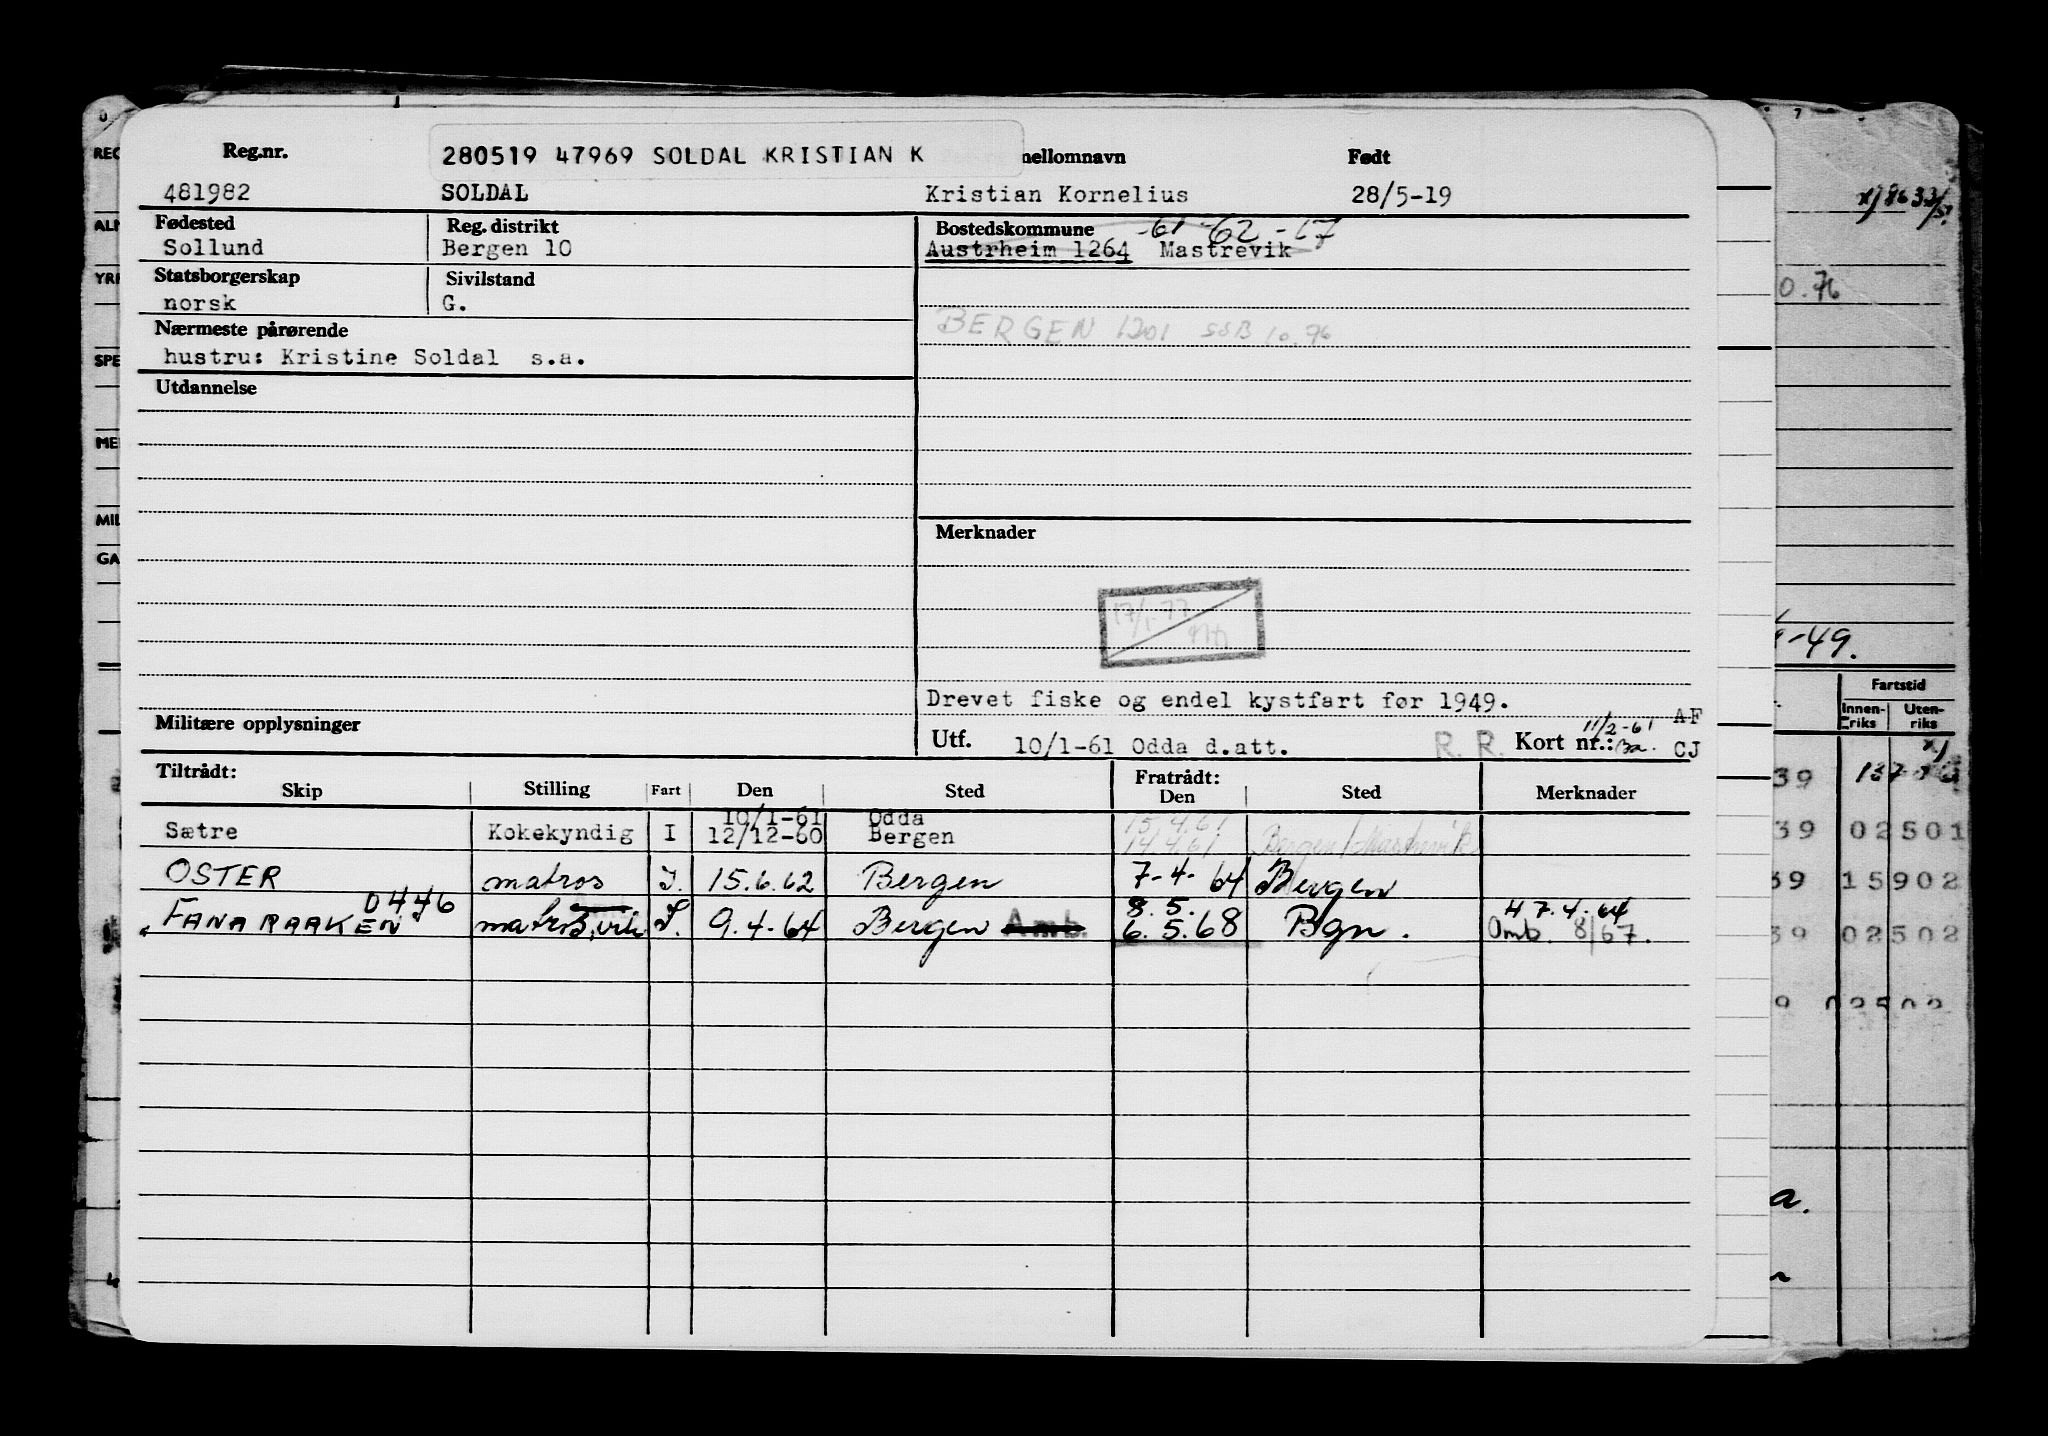 Reg.nr. 280519 47969 SOLDAL KRISTIAN K mellomnavn Født
481982 SOLDAL Kristian Kornelius 28/5-19
Fødested Reg. distrikt Bostedskommune -61 -62 -67
Sollund Bergen 10 Austrheim 1264 Mastrevik
Statsborgerskap Sivilstand
norsk G.
Nærmeste pårørende BERGEN 1201 SSB 10.76
hustru: Kristine Soldal s.a.
Utdannelse
Merknader
17/1-77
Drevet fiske og endel kystfart før 1949.
Militære opplysninger
Utf. 10/1-61 Odda d.att. R. R. Kort nr.: 11/2-61 AF CJ
Tiltrådt: Fratrådt:
Skip Stilling Fart Den Sted Den Sted Merknader
10/1-61 Odda 15.4.61
Sætre Kokekyndig I 12/12-60 Bergen 14.4.61 Bergen/Mastrevik
OSTER matros I. 15.6.62 Bergen 7-4-64 Bergen
0446 8.5. 7.4.64
"FANARAAKEN" matros I. 9.4-64 Bergen Amb. 6.5.68 Bgn. Omb. 8/67.
REG
ALM
YRK
SPE
MEI
MIL
GA
0.76
-49.
Fartstid
Innen-riks Uten-riks
39 137
39 02501
39 15902
39 02502
9 02502
a.